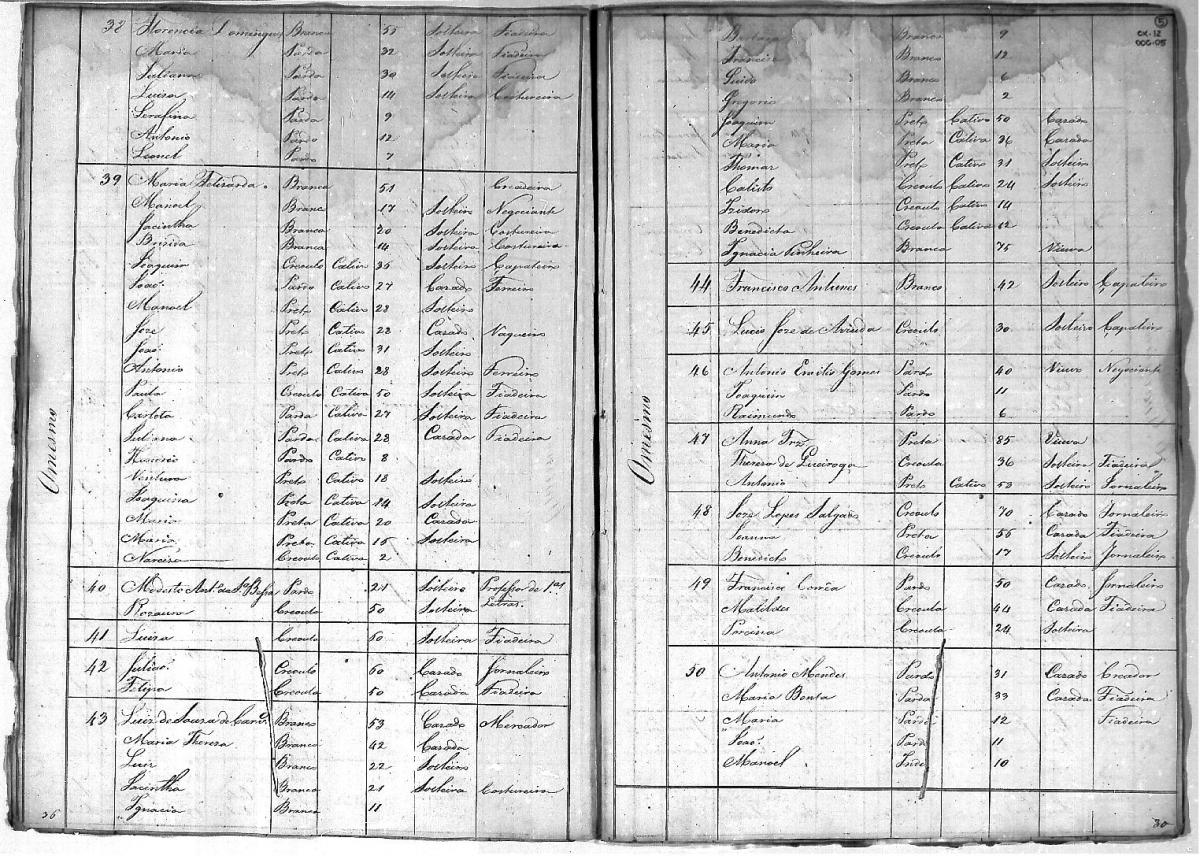 38 Florencia Domingues Branca 55 Solteira Fiadeira
Maria Parda 32 Solteira Fiadeira
Juliana Parda 30 Solteira Fiadeira
Luiza Parda 14 Solteira Costureira
Serafina Parda 9
Antonio Pardo 12
Leonel Pardo 7
39 Maria Felizarda Branca 51 Creadeira
Manoel Branc 17 Solteiro Negociante
Jacintha Branca 20 Solteira Costureira
Brizida Branca 14 Solteira Costureira
Joaquim Creoulo Cativo 35 Solteiro Çapateiro
João Pardo Cativo 27 Casado Ferreiro
Manoel Preto Cativo 28 Solteiro
Joze Preto Cativo 28 Casado Vaqueiro
João Preto Cativo 31 Solteiro
Antonio Preto Cativo 28 Solteiro Ferreiro
Paula Creoula Cativa 50 Solteira Fiadeira
Carlota Parda Cativa 27 Solteira Fiadeira
Juliana Parda Cativa 28 Casada Fiadeira
Pardo Cativo 8
Ventura Preto Cativo 18 Solteiro
Joaquina Preta Cativa 24 Solteira
Maria Preta Cativa 20 Casada
Maria Preta Cativa 15 Solteira
Narciza Creoula Cativa 2
Omesmo
40 Modesto Antº da Sª Pardo 21 Solteiro Professor de 1as Letras
Rozaura Creoula 50 Solteira
41 Luiza Creoula 60 Solteira Fiadeira
42 Julião Creoulo 60 Casado Jornaleiro
Felipa Creoula 50 Casada Fiadeira
43 Luiz de Souza de Branco 53 Casado Mercador
Maria Thereza Branca 42 Casada
Luiz Branco 22 Solteiro
Jacintha Branca 21 Solteira Costureira
Ignacia Branca 11
36
5
CX-12
DOC-05
Branca 9
Francisco Branco 12
Luiza Branca 6
Gregorio Branco 2
Joaquim Preto Cativo 50 Casado
Maria Preta Cativa 36 Casada
Thomas Preto Cativo 31 Solteiro
Calisto Creoulo Cativo 24 Solteiro
Izidoro Creoulo Cativo 14
Benedicto Creoulo Cativo 12
Ignacia Pinheira Branca 75 Viuva
44 Francisco Antunes Branco 42 Solteiro Çapateiro
45 Lucio Joze de Arruda Creoulo 30 Solteiro Çapateiro
46 Antonio Emilio Gomes Pardo 40 Viuvo Negociante
Joaquim Pardo 11
Raimundo Pardo 6
Omesmo
47 Anna Frz Preta 85 Viuva
Thereza de Queiroga Creoula 36 Solteira Fiadeira
Antonio Preto Cativo 53 Solteiro Jornaleiro
48 Joze Lopes Salgado Creoulo 70 Casado Jornaleiro
Joanna Preta 55 Casada Fiadeira
Benedicto Creoulo 17 Solteiro Jornaleiro
49 Francisco Corrêa Pardo 50 Casado Jornaleiro
Matildes Creoula 44 Casada Fiadeira
Porcina Creoula 24 Solteira
50 Antonio Mendes Pardo 31 Casado Creador
Maria Benta Parda 33 Casada Fiadeira
Maria Parda 12 Fiadeira
João Pardo 11
Manoel Indio 10
30